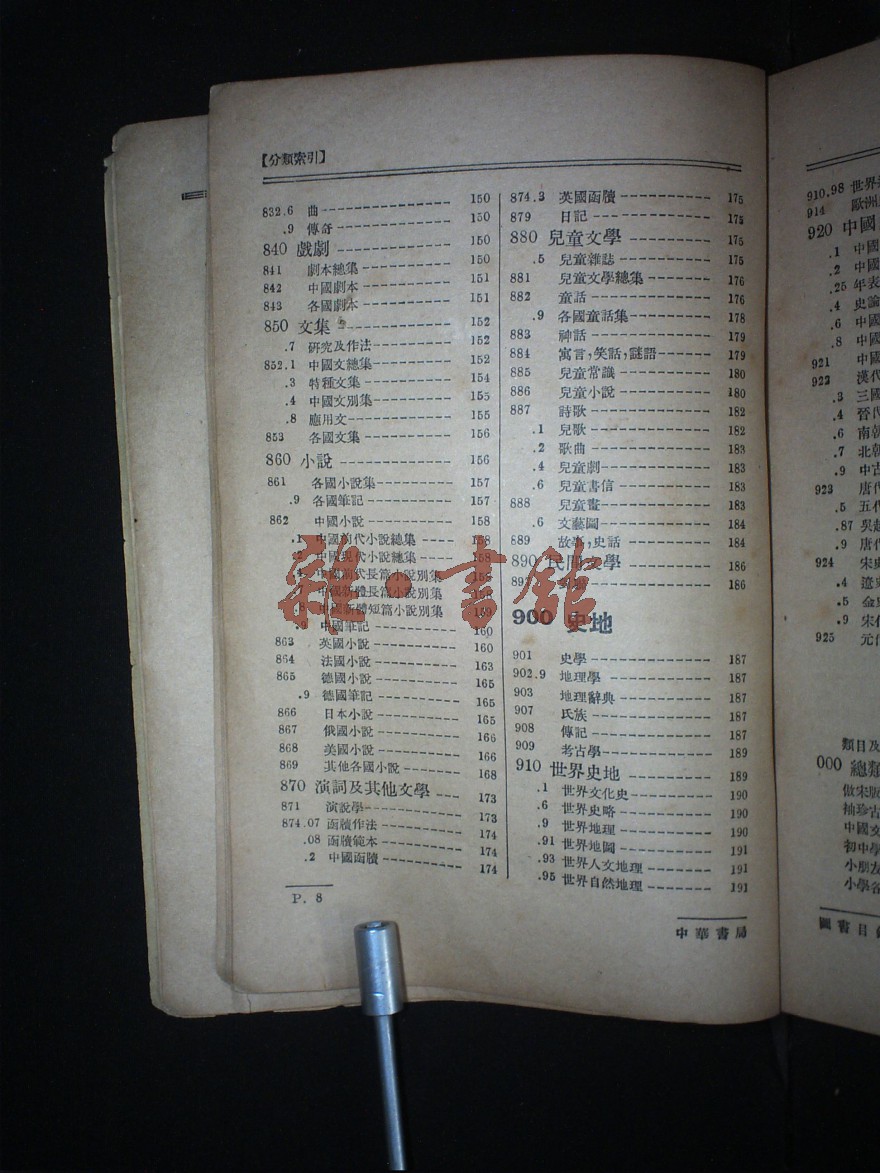 【分類索引】
832.6 曲 150
.9 傳奇 150
840 戲劇 150
841 劇本總集 150
842 中國劇本 151
843 各國劇本 151
850 文集 152
.7 研究及作法 152
852.1 中國文總集 152
.3 特種文集 154
.4 中國文別集 155
.8 應用文 155
853 各國文集 156
860 小說 156
861 各國小說集 157
.9 各國筆記 157
862 中國小說 158
.1 中國前代小說總集 158
.2 中國現代小說總集 158
.4 中國前代長篇小說別集
.7 中國新體長篇小說別集
.8 中國新體短篇小說別集 159
.9 中國筆記 160
863 英國小說 160
864 法國小說 163
865 德國小說 165
.9 德國筆記 165
866 日本小說 165
867 俄國小說 166
868 美國小說 166
869 其他各國小說 168
870 演詞及其他文學 173
871 演說學 173
874.07 函牘作法 174
.08 函牘範本 174
.2 中國函牘 174
P. 8
874.3 英國函牘 175
879 日記 175
880 兒童文學 175
.5 兒童雜誌 175
881 兒童文學總集 176
882 童話 176
.9 各國童話集 178
883 神話 179
884 寓言，笑話，謎語 179
885 兒童常識 180
886 兒童小說 180
887 詩歌 182
.1 兒歌 182
.2 歌曲 183
.4 兒童劇 183
.6 兒童書信 183
888 兒童畫 183
.6 文藝圖 184
889 故事，史話 184
890 民間文學 186
186
900 史地
901 史學 187
902.9 地理學 187
903 地理辭典 187
907 氏族 187
908 傳記 187
909 考古學 189
910 世界史地 189
.1 世界文化史 190
.6 世界史略 190
.9 世界地理 190
.91 世界地圖 191
.93 世界人文地理 191
.95 世界自然地理 191
中華書局
雜·書館
910.98 世界
914 歐洲
920 中國
.1 中國
.2 中國
.25 年表
.4 史論
.6 中國
.8 中國
921 中國
922 漢代
.3 三國
.4 晉代
.6 南朝
.7 北朝
.9 中古
923 唐代
.5 五代
.87 吳越
.9 唐代
924 宋史
.4 遼史
.5 金史
.9 宋代
925 元代
類目及
000 總類
倣宋版
袖珍古
中國文
初中學
小朋友
小學各
圖書目錄